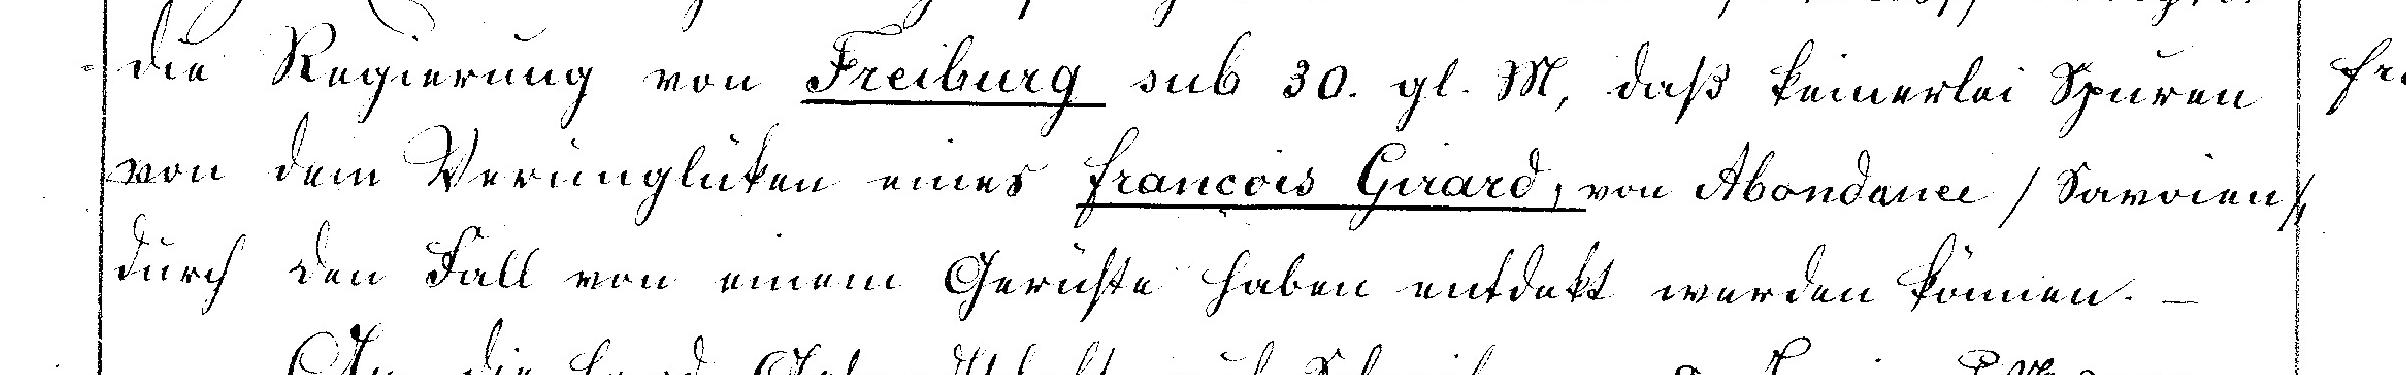 die Regierung von Freiburg sub 30. gl. M, daß keinerlei Spuren
von dem Verunglüken eines François Girard, von Abondance / Savoien /,
durch den Fall von einem Gerüste haben entdekt werden können. —
An die